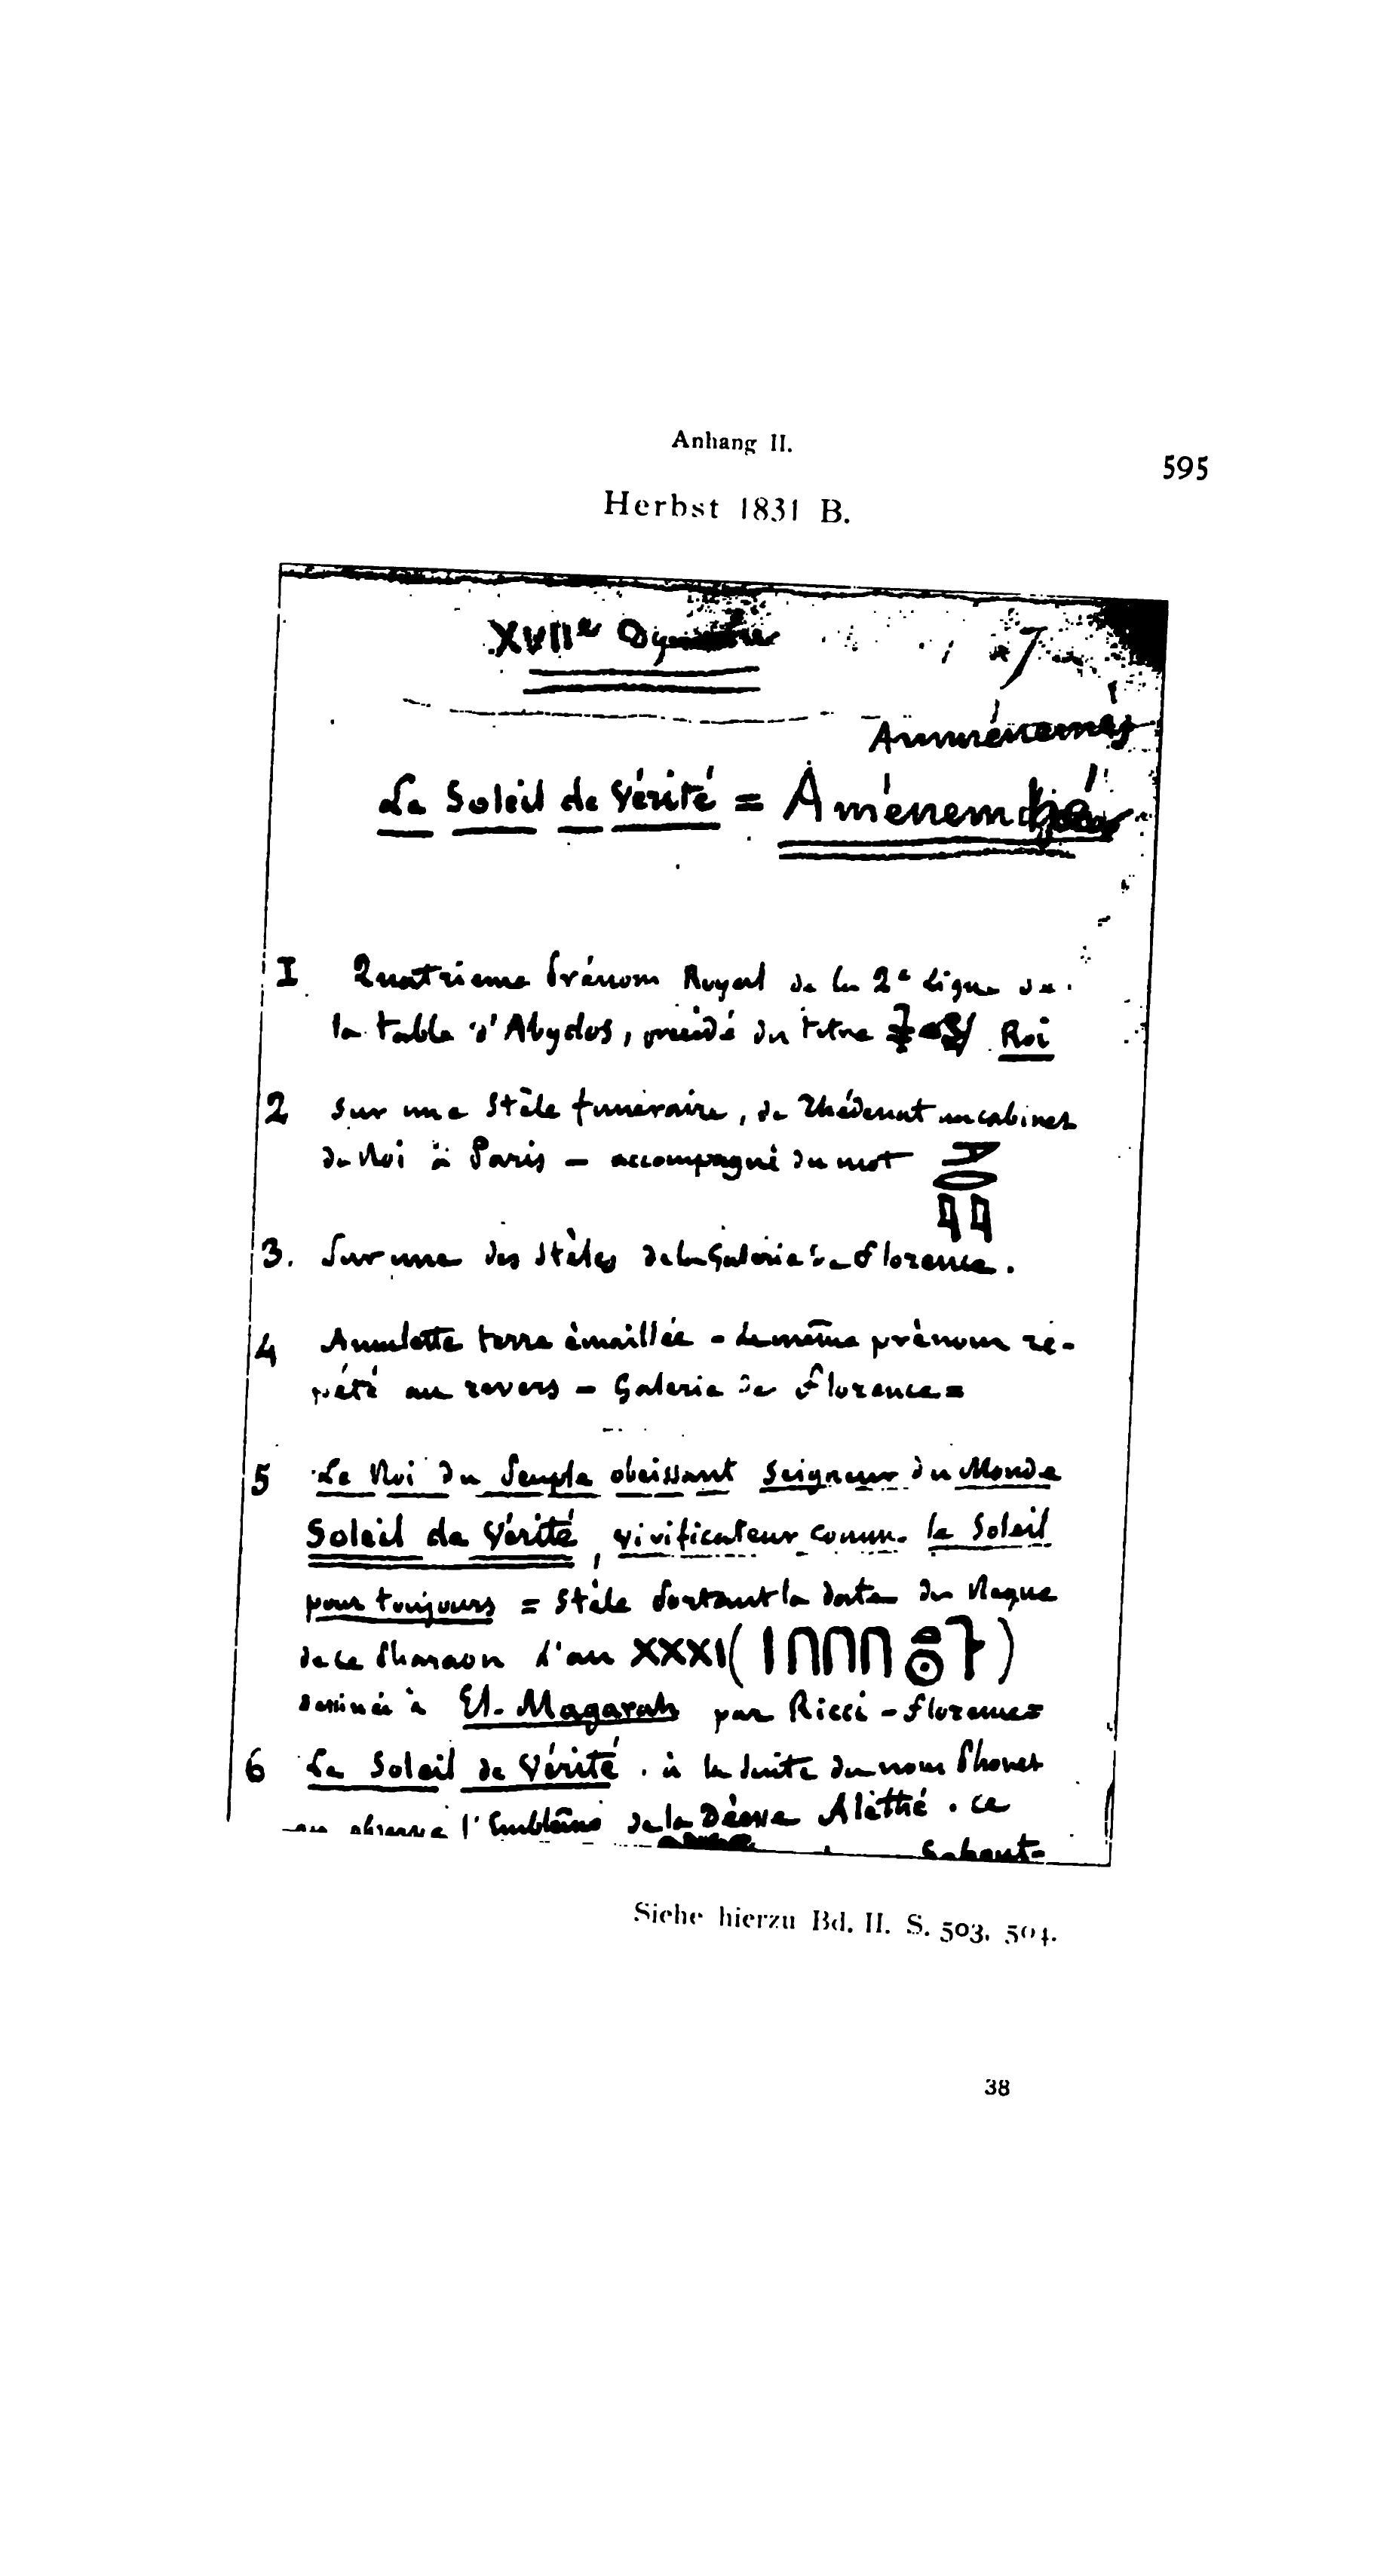 Anhang II.
595
Herbst 1831 B.
XVIIe Dynastie
7
Amménemès
Le Soleil de Vérité = Aménem
1 Quatrieme Prénom Royal de la 2e Ligne de
la table d'Abydos, précédé du titre Roi
2 Sur une Stèle funéraire, de Thédenat au cabinet
du Roi à Paris – accompagné du mot
3. Sur une des Stèles de la Galerie de Florence.
4 Amulette terre émaillée – le même prénom ré-
pété au revers – Galerie de Florence =
5 Le Roi du Peuple obéissant Seigneur du Monde
Soleil de Vérité, vivificateur comme le Soleil
pour toujours = Stèle portant la date du Règne
de ce Pharaon l'an XXXI ( )
dessinée à El-Magarah par Ricci – Florence =
6 Le Soleil de Vérité. à la suite du nom Phonet
on observe l'Emblême de la Déesse Aléthé. ce
Siehe hierzu Bd. II. S. 503, 504.
38